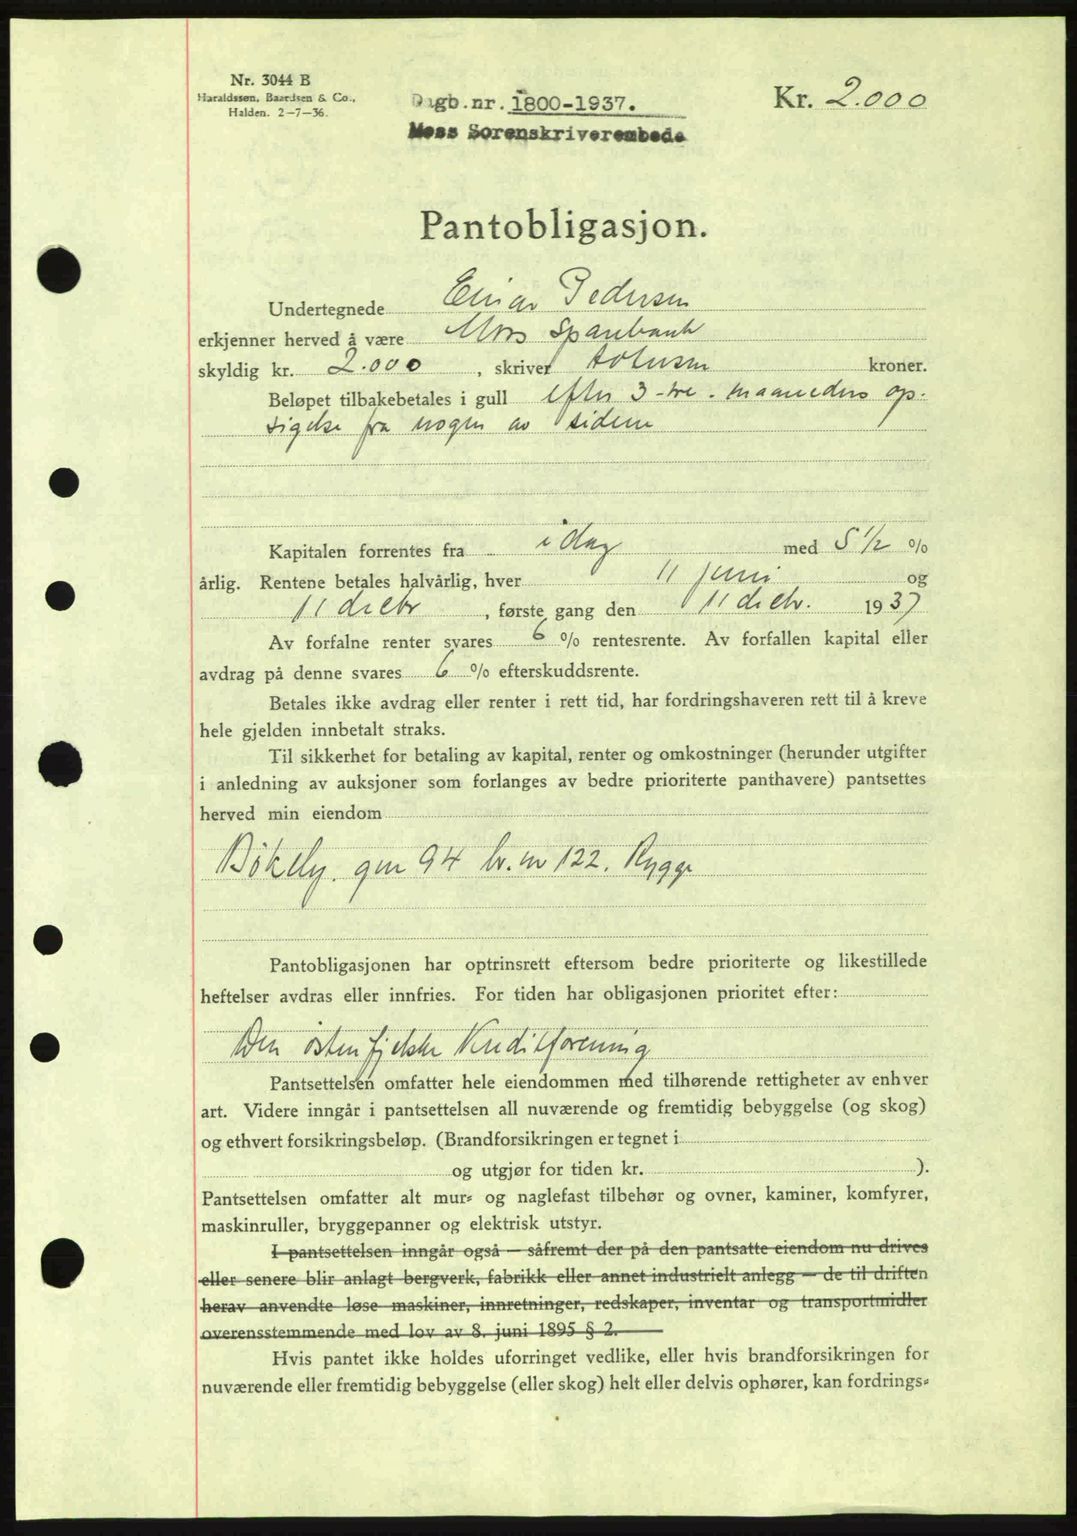 Nr. 3044 B
Haraldssen, Baardsen & Co.,
Halden. 2-7-36.
Dagb.nr. 1800-1937.
Moss Sorenskriverembede
Kr. 2.000
Pantobligasjon.
Undertegnede Einar Pedersen
erkjenner herved å være Moss Sparebank
skyldig kr. 2.000, skriver totusen kroner.
Beløpet tilbakebetales i gull efter 3-tre. maaneders op-
sigelse fra nogen av sidene
Kapitalen forrentes fra i dag med 5 1/2 %
årlig. Rentene betales halvårlig, hver 11 juni og
11 decbr, første gang den 11 decbr. 1937
Av forfalne renter svares 6 % rentesrente. Av forfallen kapital eller
avdrag på denne svares 6 % efterskuddsrente.
Betales ikke avdrag eller renter i rett tid, har fordringshaveren rett til å kreve
hele gjelden innbetalt straks.
Til sikkerhet for betaling av kapital, renter og omkostninger (herunder utgifter
i anledning av auksjoner som forlanges av bedre prioriterte panthavere) pantsettes
herved min eiendom
Bøkely. gnr 94 br. nr 122. Rygge
Pantobligasjonen har optrinsrett eftersom bedre prioriterte og likestillede
heftelser avdras eller innfries. For tiden har obligasjonen prioritet efter:
Den østenfjelske Kreditforening
Pantsettelsen omfatter hele eiendommen med tilhørende rettigheter av enhver
art. Videre inngår i pantsettelsen all nuværende og fremtidig bebyggelse (og skog)
og ethvert forsikringsbeløp. (Brandforsikringen er tegnet i
og utgjør for tiden kr. ).
Pantsettelsen omfatter alt mur- og naglefast tilbehør og ovner, kaminer, komfyrer,
maskinruller, bryggepanner og elektrisk utstyr.
I pantsettelsen inngår også — såfremt der på den pantsatte eiendom nu drives
eller senere blir anlagt bergverk, fabrikk eller annet industrielt anlegg — de til driften
herav anvendte løse maskiner, innretninger, redskaper, inventar og transportmidler
overensstemmende med lov av 8. juni 1895 § 2.
Hvis pantet ikke holdes uforringet vedlike, eller hvis brandforsikringen for
nuværende eller fremtidig bebyggelse (eller skog) helt eller delvis ophører, kan fordrings-